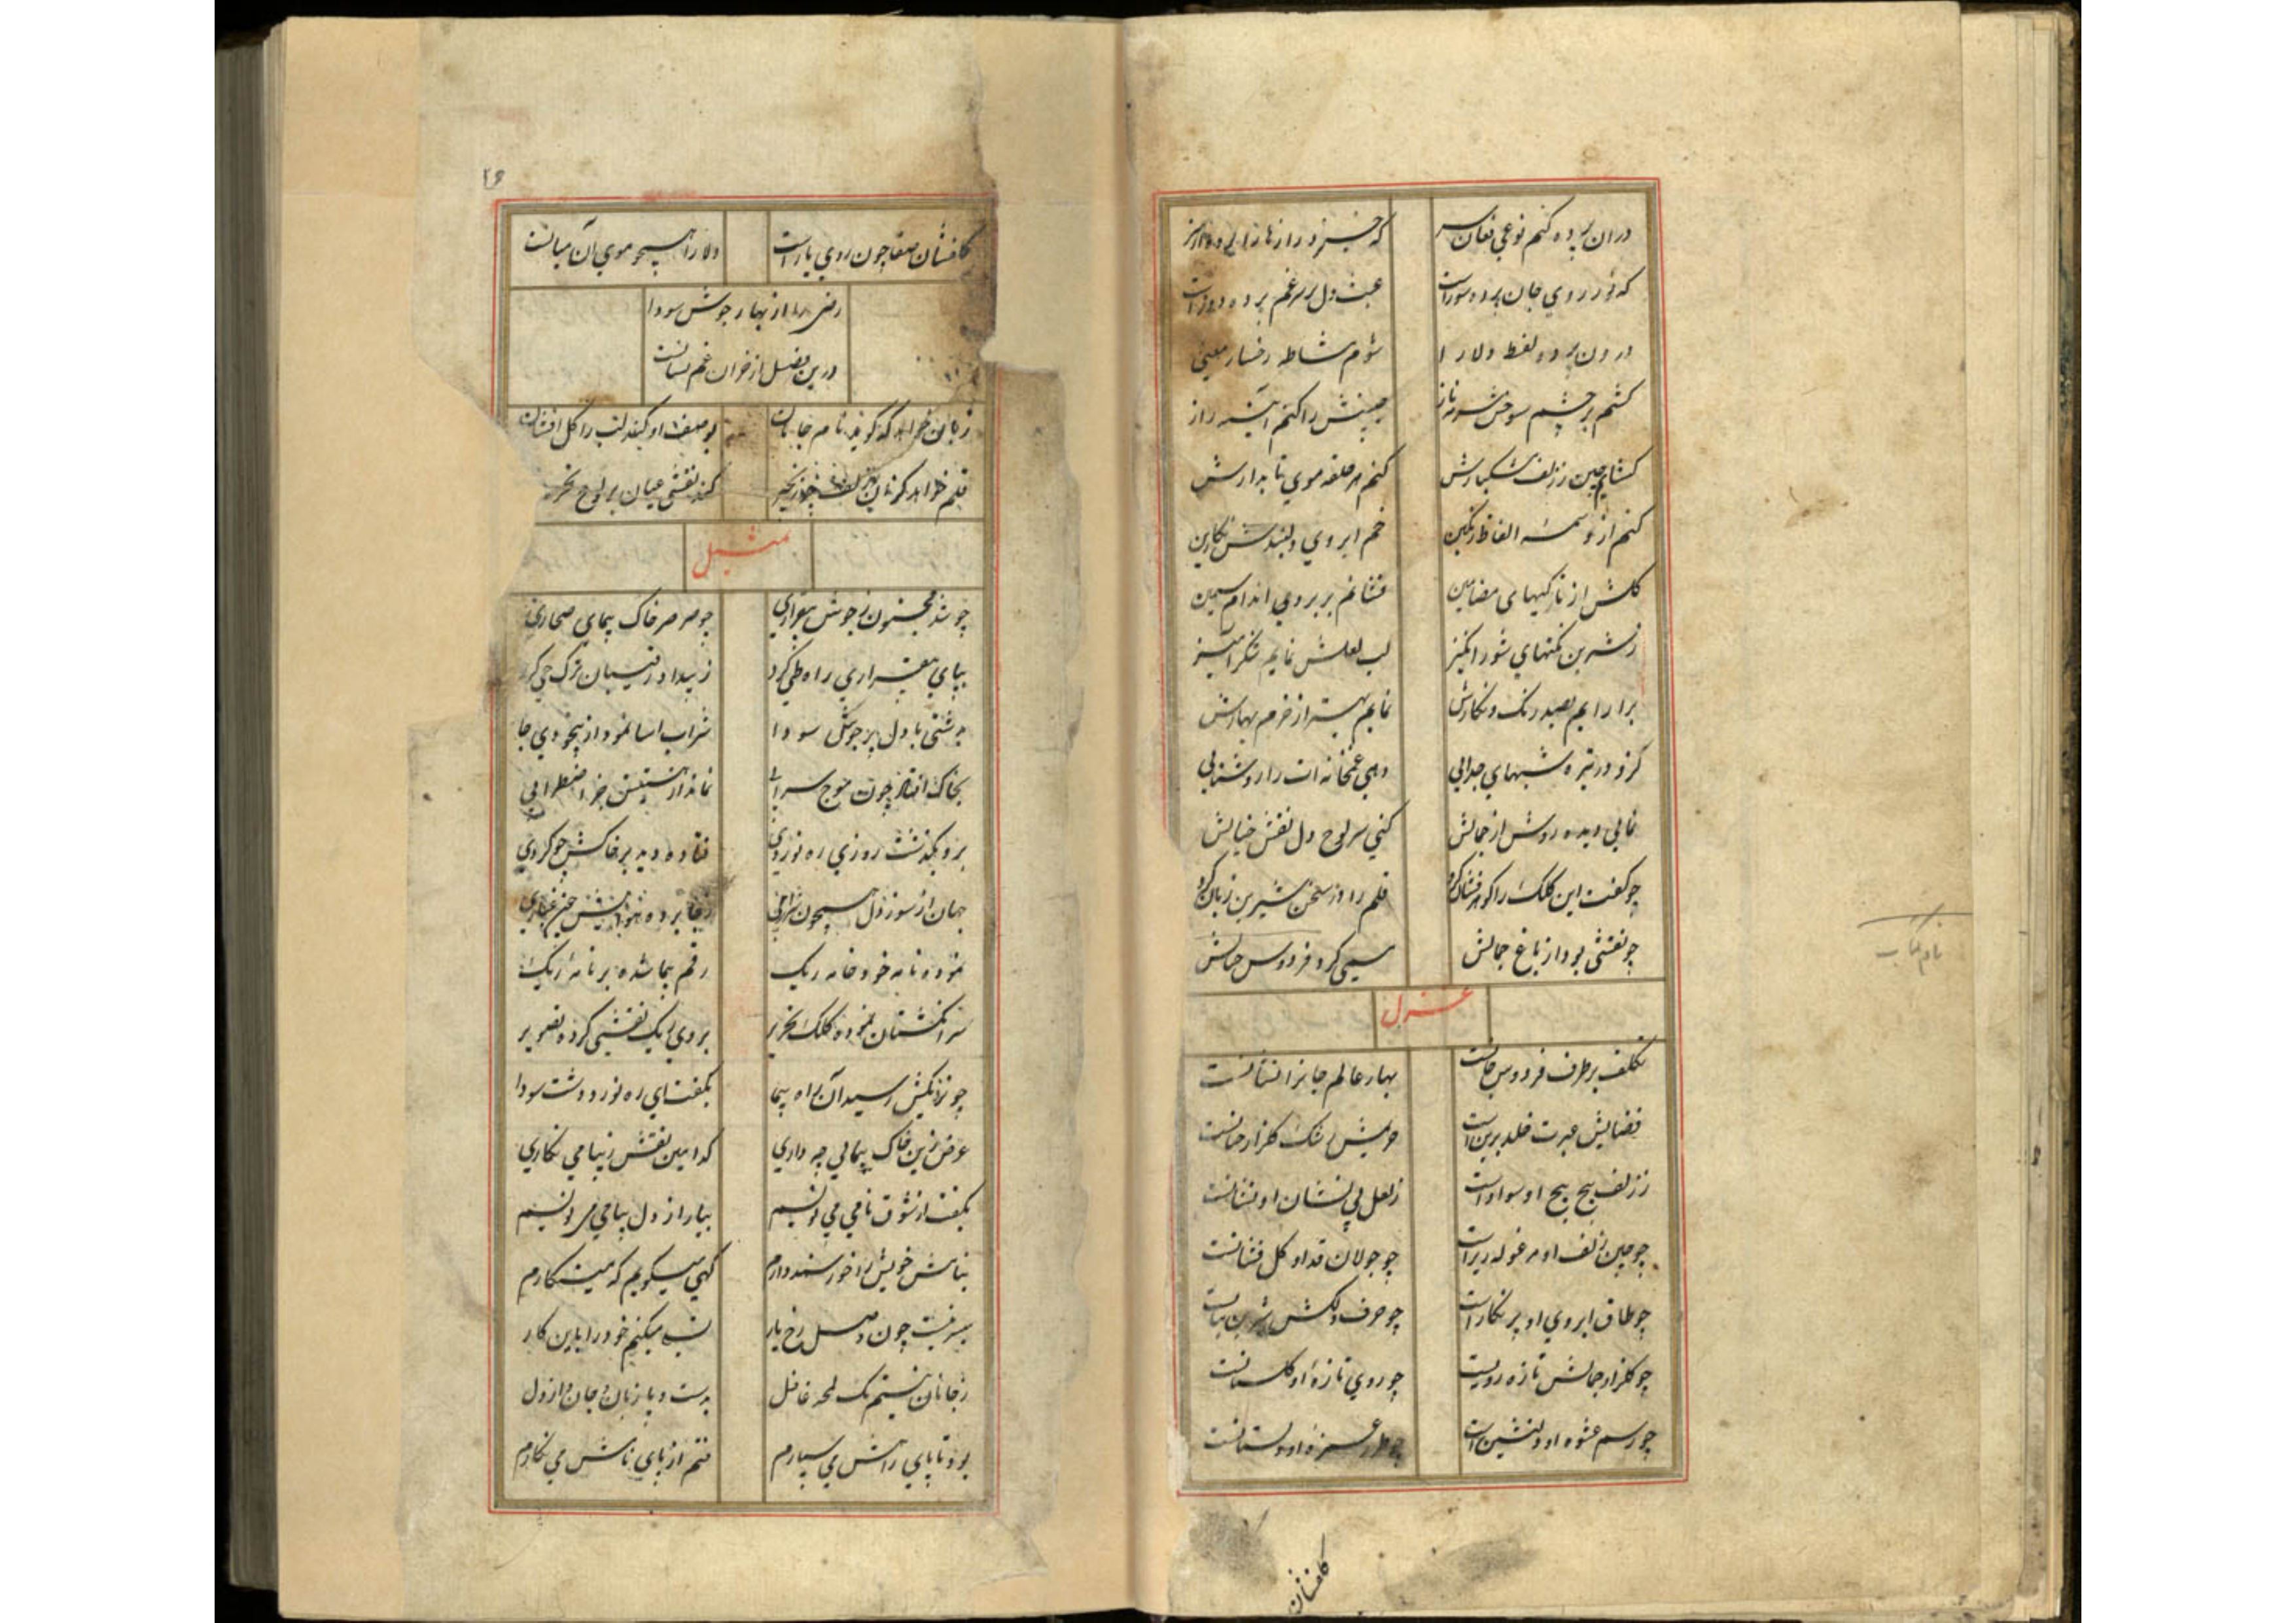 دران پرده کنم نوعی فغان سر
که نور روی جان پرده سوز است عبث دل بر سر غم پرده دوز است
درون پرده لفظ دلارا شوم مشاطه رخسار معنی
کشم بر چشم سرمه ناز جبینش را کنم آئینه راز
کشایم چین ز زلف مشکبارش کنم هر حلقه موی تابدارش
کنم از وسمه الفاظ رنگین خم ابروی دلبندش نکارین
کلش از نازکیهای مضامین فشانم بر بروی اندام سیمین
ز شیرین نکتهای شور انکیز لب لعلش نمایم شکر آمیز
برارایم بصد رنک و نکارش نمایم بهتر از خرم بهارش
کزو در تیره شبهای جدائی دهی غمخانه ات را روشنائی
نمائی دیده روشن از جمالش کنی بر لوح دل نقش خیالش
چو کفت این کلک را کوهر فشان کرد قلم را در سخن شیرین زبان کرد
چو نقشی بود از باغ جمالش مسمی کرد فردوس خیالش
غزل
تکلف بر طرف فردوس جانست بهار عالم جانرا نشانست
فضایش عبرت خلد برین است حریمش رشک کلزار جنانست
ز زلف پیچ پیچ او سواد است ز لعل بی نشان او نشانست
چو چین زلف او مرغوله ریز است چو جولان قد او کل فشانست
چو طاق ابروی او پر نکار است چو حرف دلکش شیرین بیانست
چو کلزار جمالش تازه رویست چو روی تازهٔ او کلستانست
چو رسم عشوه او دلنشین است چو طرز غمزه او دلستانست
کافشان
۲۶
کافشان صفا چون روی یار است دلارا همچو موی آن میانست
رضی را از بهار جوش سودا
درین فصل از خزان غم نسانست
زبان خواهد که کوید نام جانان بوصف او کند لب را کل افشان
قلم خواهد کزان زلف چو زنجیر کند نقشی عیان بر لوح تحریر
تمثیل
چو شد مجنون ز جوش بیقراری چو صرصر خاک پیمای صحاری
بپای بیقراری راه طی کرد ز بیداد رقیبان ترک حی کرد
بدشتی با دل پر جوش سودا شراب آسا نمود از بیخودی جا
بخاک افتاد چون موج سرابی نماند از هستیش جز اضطرابی
برو بکذشت روزی ره نوردی فتاده دید بر خاکش چو کردی
جهان از سوز دل همچون شراری ز جا برده
نموده نامه خود خامه ریک رقم پیما شده بر نامهٔ ریک
سر انکشتان نموده کلک تحریر بروی ریک نقشی کرده تصویر
چو نزدیکش رسید آن راه پیما بکفت ای ره نورد دشت سودا
غرض زین خاک پیمائی چه داری کدامین نقش زیبا می نکاری
بکفت از شوق نامی می نویسم بیار از دل پیامی می نویسم
بنامش خویش را خورسند دارم کهی میکویم که مینکارم
میسر نیست چون وصل رخ یار تسلی میکنم خود را باین کار
ز جانان نیستم یک لمحه غافل بدست و پا زبان و جان و از دل
بود تا پای راهش می سپارم فتم از پای نامش می نکارم